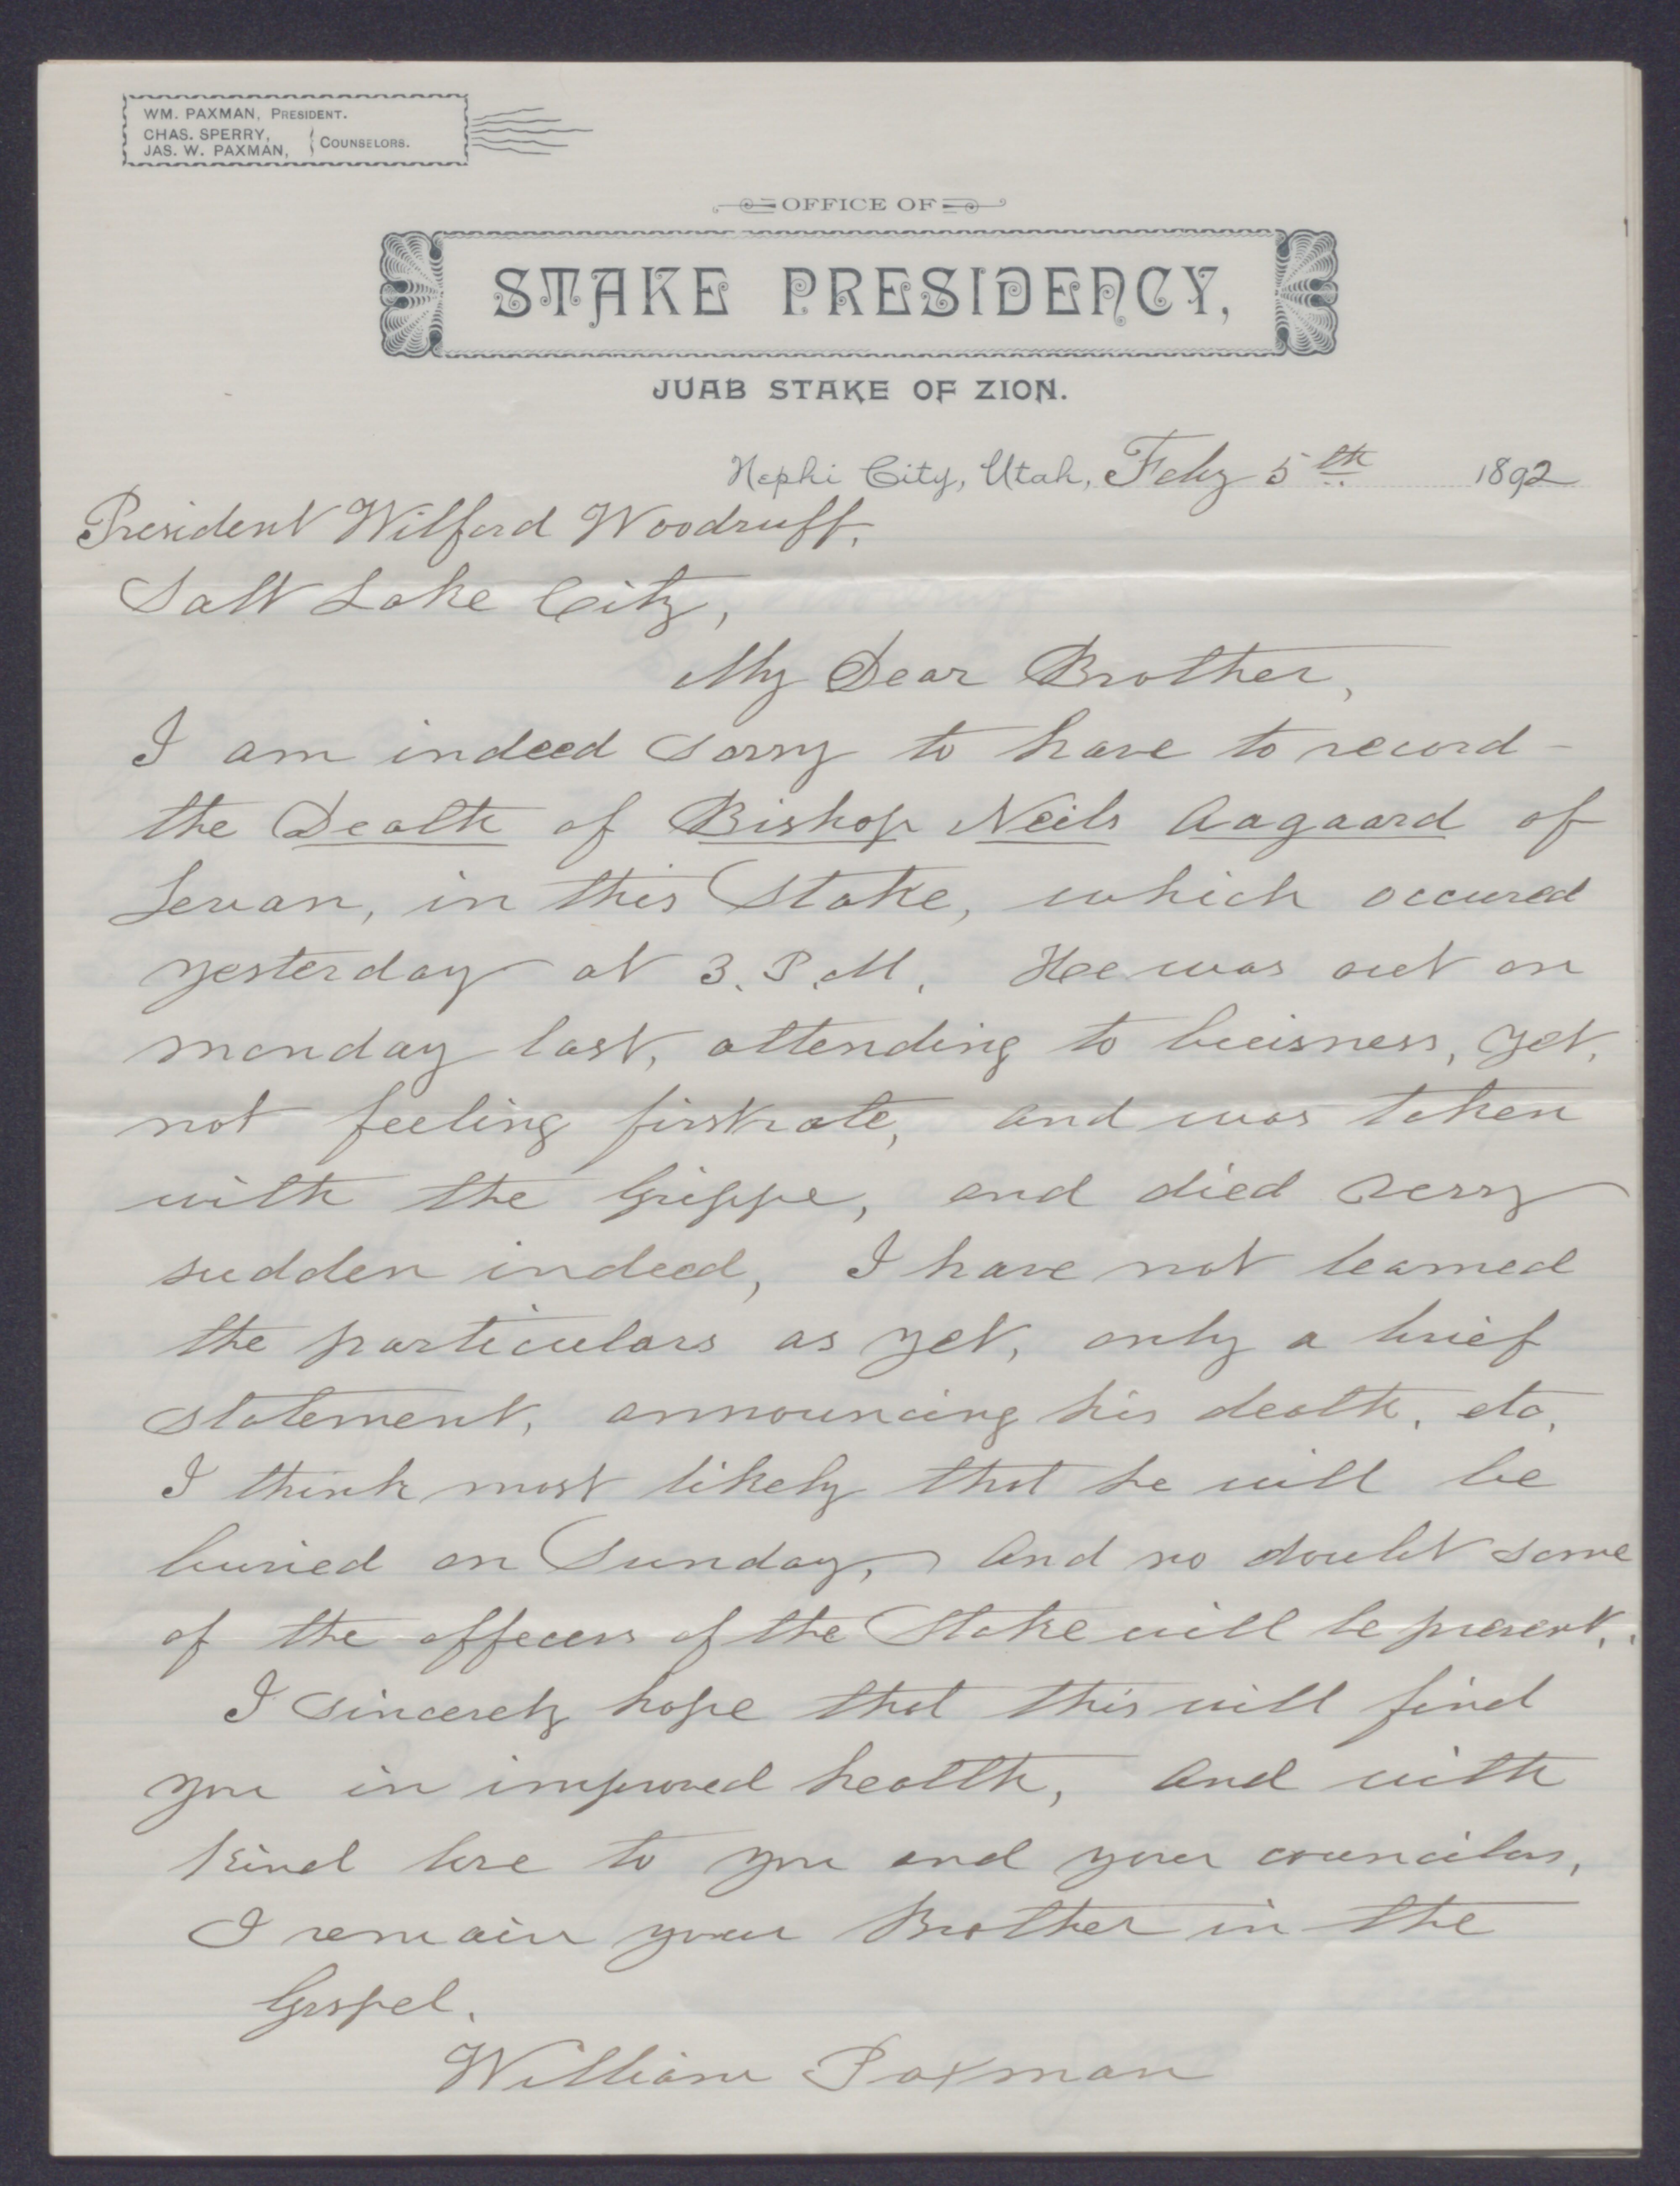 WM. PAXMAN, PRESIDENT.
CHAS. SPERRY,
JAS. W. PAXMAN, } COUNSELORS.
OFFICE OF
STAKE PRESIDENCY,
JUAB STAKE OF ZION.
Nephi City, Utah, Feby 5th 1892
President Wilford Woodruff,
Salt Lake City,
My Dear Brother,
I am indeed sorry to have to record
the Death of Bishop Neils Aagaard of
Levan, in this Stake, which occured
yesterday at 3. P.M. Hee was out on
monday last, attending to buisness, yet,
not feeling firstrate, and was taken
with the Grippe, and died very
sudden indeed, I have not learned
the particulars as yet, only a brief
statement, announcing his death, etc,
I think most likely that he will be
buried on Sunday, and no doubt some
of the offecers of the Stake will be present.
I sincerely hope that this will find
you in improved health, and with
kind love to you and your councilors,
I remain your Brother in the
Gospel.
William Paxman